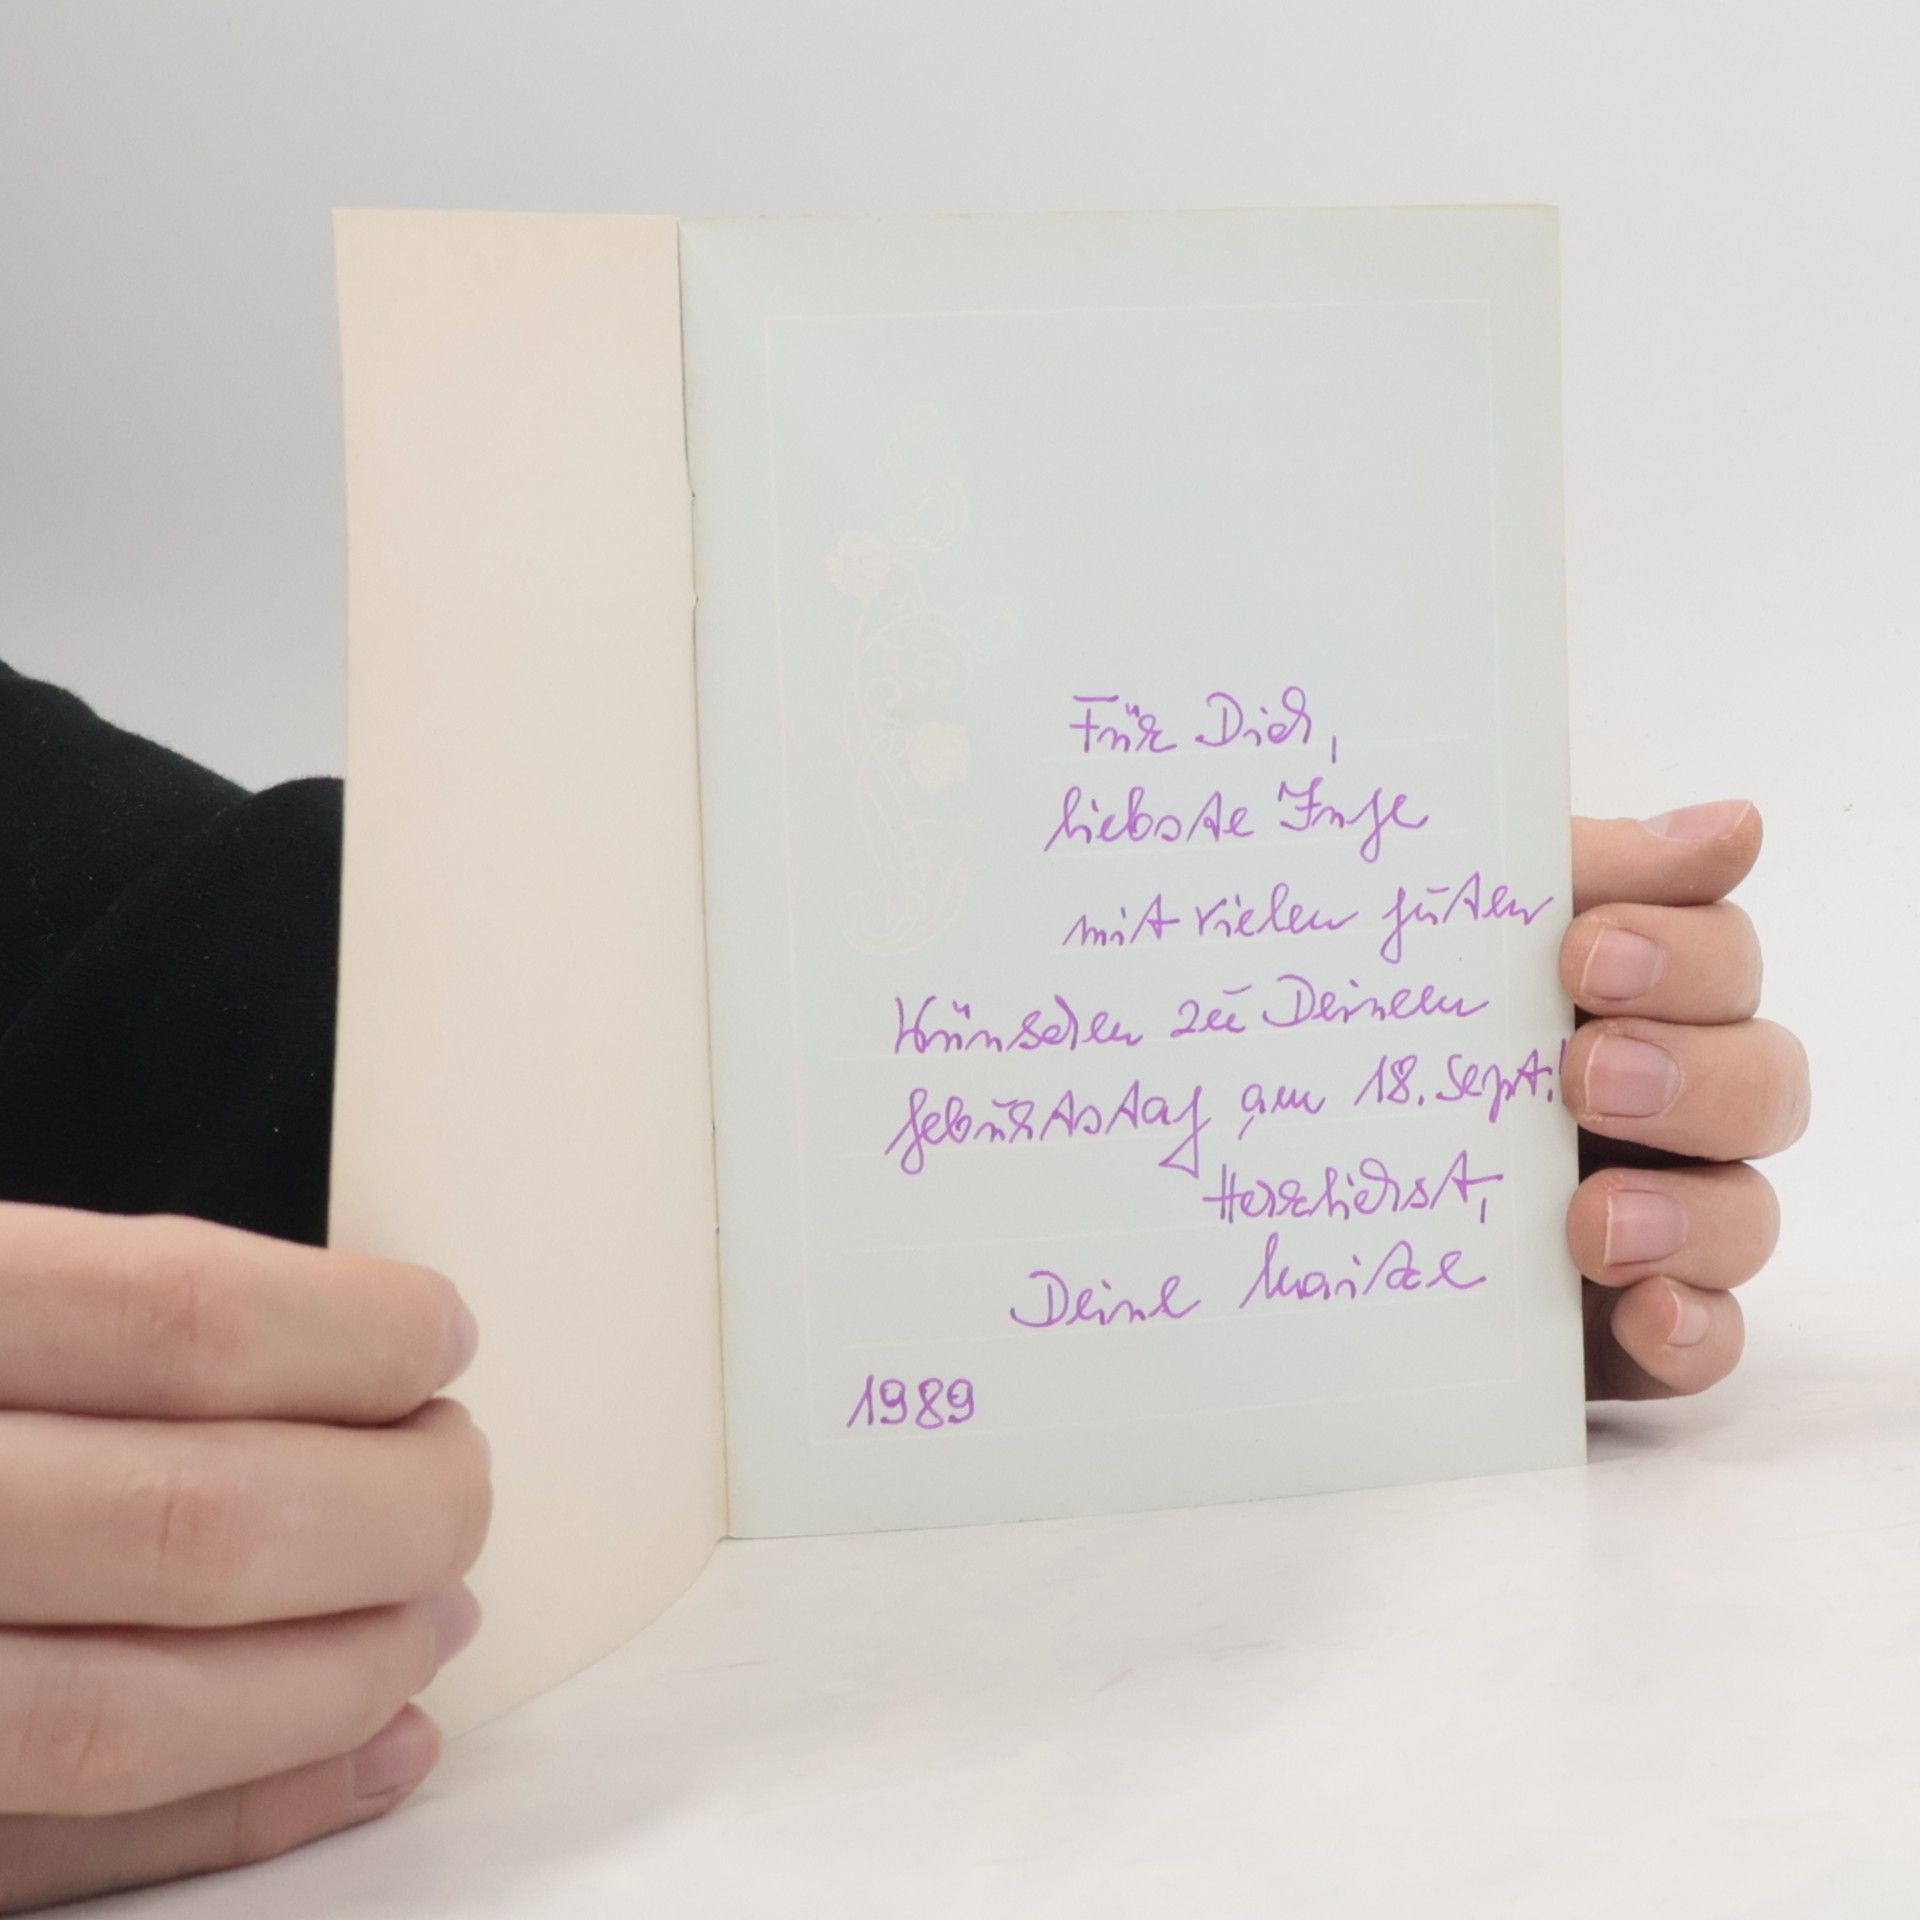 Für Dich,
liebste Inge
mit vielen guten
Wünschen zu Deinem
Geburtstag am 18. Sept.!
Herzlichst,
Deine
1989